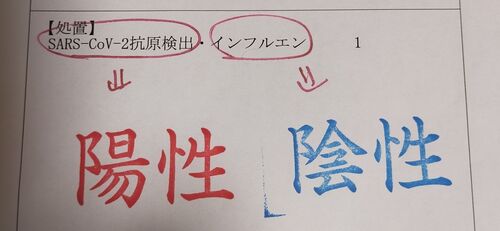 【処置】
SARS-CoV-2抗原検出・インフルエン 1
陽性 陰性